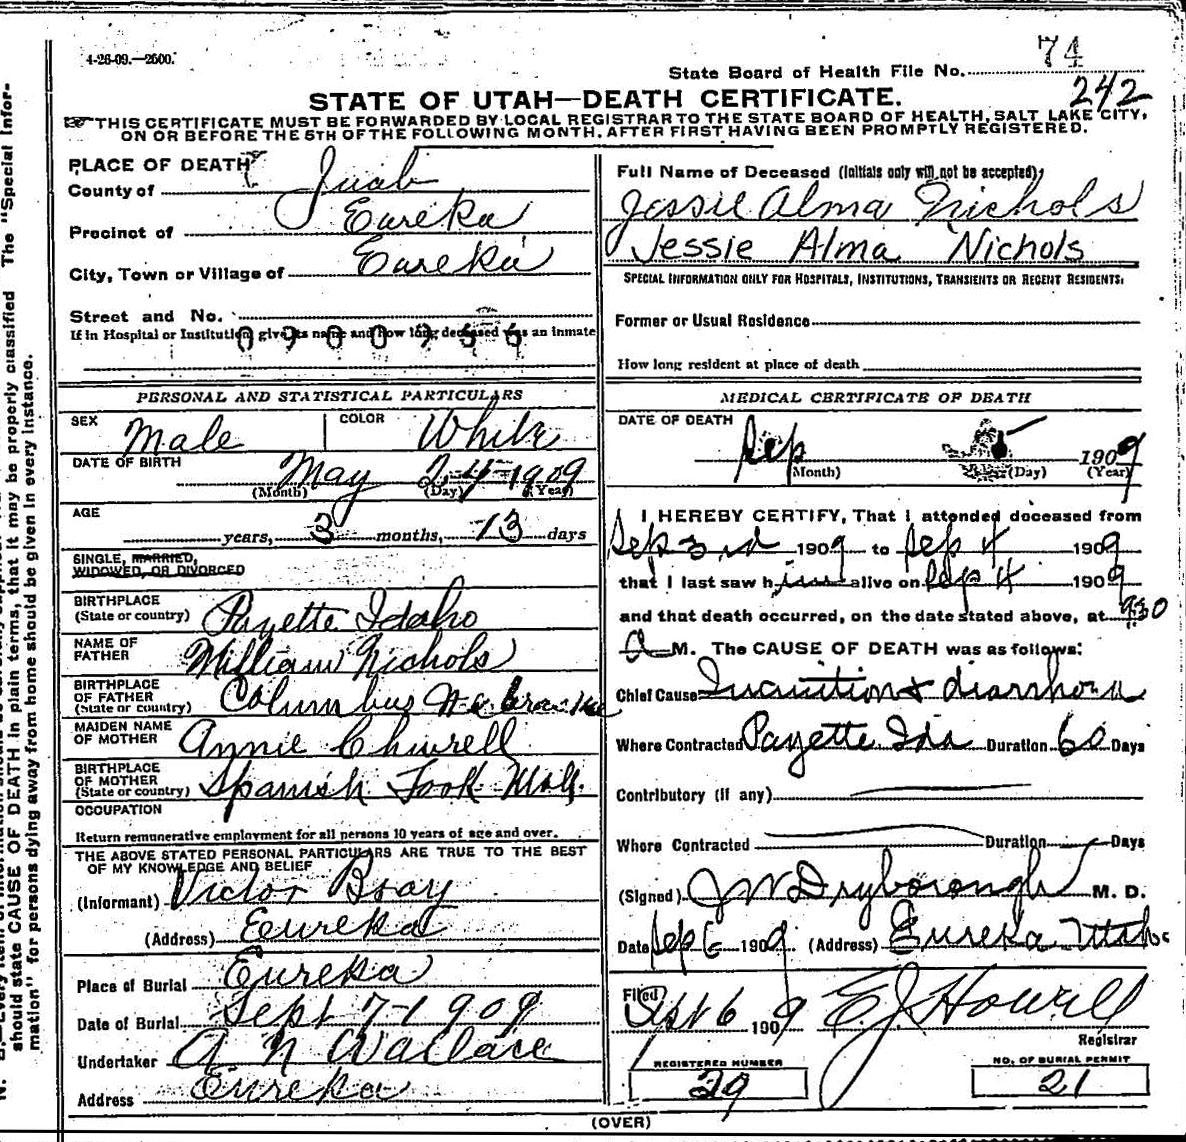 4-26-09.—2500.
74
State Board of Health File No.
242
STATE OF UTAH—DEATH CERTIFICATE.
THIS CERTIFICATE MUST BE FORWARDED BY LOCAL REGISTRAR TO THE STATE BOARD OF HEALTH, SALT LAKE CITY,
ON OR BEFORE THE 5TH OF THE FOLLOWING MONTH, AFTER FIRST HAVING BEEN PROMPTLY REGISTERED.
PLACE OF DEATH
County of Juab
Precinct of Eureka
City, Town or Village of Eureka
Street and No.
If in Hospital or Institution give its name and how long deceased was an inmate
PERSONAL AND STATISTICAL PARTICULARS
SEX Male COLOR White
DATE OF BIRTH May 24 1909
(Month) (Day) (Year)
AGE
years, 3 months, 13 days
SINGLE, MARRIED,
WIDOWED, OR DIVORCED
BIRTHPLACE
(State or country) Payette Idaho
NAME OF
FATHER William Nichols
BIRTHPLACE
OF FATHER
(State or country) Columbus Nebraska
MAIDEN NAME
OF MOTHER Annie
BIRTHPLACE
OF MOTHER
(State or country) Spanish Fook
OCCUPATION
Return remunerative employment for all persons 10 years of age and over.
THE ABOVE STATED PERSONAL PARTICULARS ARE TRUE TO THE BEST
OF MY KNOWLEDGE AND BELIEF
(Informant) Victor Bray
(Address) Eureka
Place of Burial Eureka
Date of Burial Sept 7-1909
Undertaker A N Wallace
Address Eureka
Full Name of Deceased (Initials only will not be accepted)
Jessie Alma Nichols
Jessie Alma Nichols
SPECIAL INFORMATION ONLY FOR HOSPITALS, INSTITUTIONS, TRANSIENTS OR RECENT RESIDENTS.
Former or Usual Residence
How long resident at place of death
MEDICAL CERTIFICATE OF DEATH
DATE OF DEATH
Sep 1909
(Month) (Day) (Year)
I HEREBY CERTIFY, That I attended deceased from
Sep 3rd 1909 to Sep 4 1909
that I last saw him alive on Sep 4 1909
and that death occurred, on the date stated above, at 9:30
A M. The CAUSE OF DEATH was as follows:
Chief Cause Inanition & diarrhoea
Where Contracted Payette Ida Duration 60 Days
Contributory (if any)
Where Contracted Duration Days
(Signed) J W Dryborough M. D.
Date Sep 6 1909 (Address) Eureka Utah
Filed Sept 6 1909 E J Howell
Registrar
REGISTERED NUMBER
29
NO. OF BURIAL PERMIT
21
(OVER)
should state CAUSE OF DEATH in plain terms, that it may be properly classified The "Special Infor-
mation" for persons dying away from home should be given in every instance.